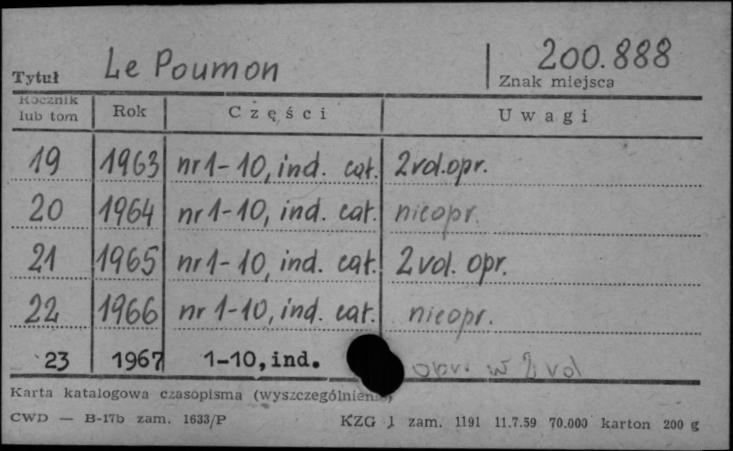 Tytuł Le Poumon 200.888
Znak miejsca
Rocznik lub tom Rok Części Uwagi
19 1963 nr 1-10, ind. cat. 2 vol. opr.
20 1964 nr 1-10, ind. cat. nieopr.
21 1965 nr 1-10, ind. cat. 2 vol. opr.
22 1966 nr 1-10, ind. cat. nieopr.
23 1967 1-10, ind. opr. w 2 vol
Karta katalogowa czasopisma
CWD — B-17b zam. 1633/P KZG 1 zam. 1191 11.7.59 70.000 karton 200 g